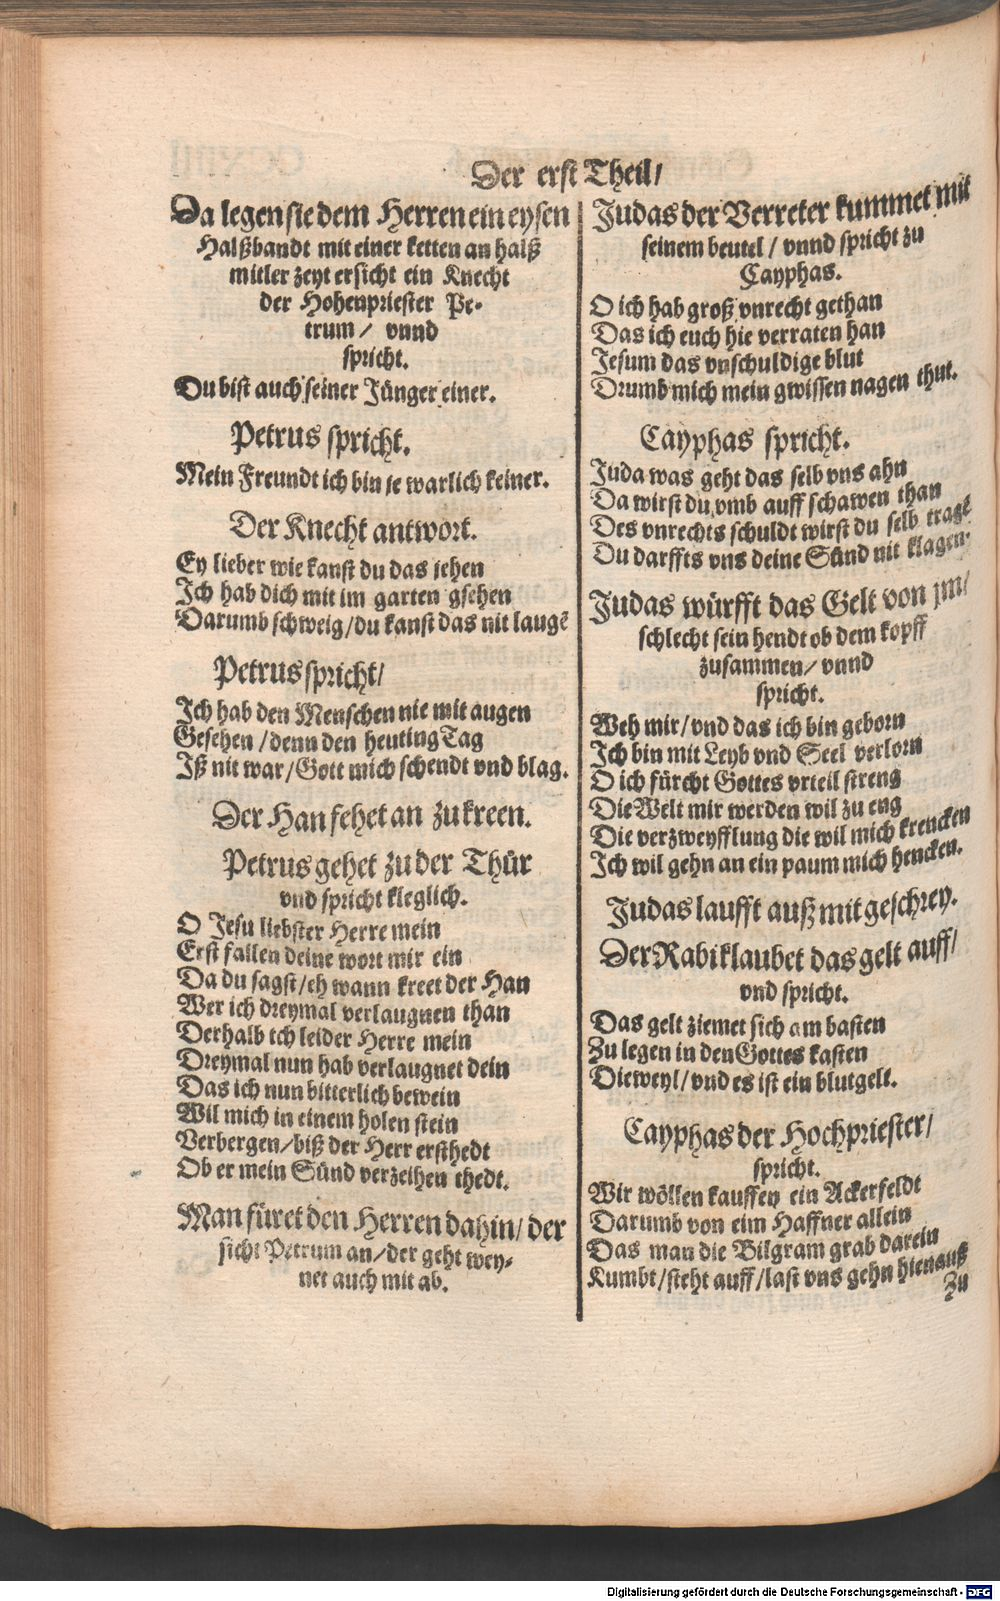 Der erst Theil/
Da legen sie dem Herren ein eysen
Halßbandt mit einer ketten an halß
mitler zeyt ersicht ein Knecht
der Hohenpriester Pe-
trum / vnnd
spricht.
Du bist auch seiner Jünger einer.
Petrus spricht.
Mein Freundt ich bin je warlich keiner.
Der Knecht antwort.
Ey lieber wie kanst du das jehen
Ich hab dich mit im garten gsehen
Darumb schweig/du kanst das nit laugẽ
Petrus spricht/
Ich hab den Menschen nie mit augen
Gesehen /denn den heuting Tag
Iß nit war/Gott mich schendt vnd blag.
Der Han fehet an zu kreen.
Petrus gehet zu der Thür
vnd spricht kleglich.
O Jesu liebster Herre mein
Erst fallen deine wort mir ein
Da du sagst/eh wann kreet der Han
Wer ich dreymal verlaugnen than
Derhalb ich leider Herre mein
Dreymal nun hab verlaugnet dein
Das ich nun bitterlich bewein
Wil mich in einem holen stein
Verbergen/biß der Herr ersthedt
Ob er mein Sünd verzeihen thedt.
Man füret den Herren dahin/ der
sicht Petrum an/der geht wey-
net auch mit ab.
Judas der Verreter kummet mit
seinem beutel / vnnd spricht zu
Cayphas.
O ich hab groß vnrecht gethan
Das ich euch hie verraten han
Jesum das vnschuldige blut
Drumb mich mein gwissen nagen thut.
Cayphas spricht.
Juda was geht das selb vns ahn
Da wirst du vmb auff schawen than
Des vnrechts schuldt wirst du selb tragẽ
Du darffts vns deine Sünd nit klagen.
Judas würfft das Gelt von jm/
schlecht sein hendt ob dem kopff
zusammen/ vnnd
spricht.
Weh mir/vnd das ich bin geborn
Ich bin mit Leyb vnd Seel verlorn
O ich fürcht Gottes vrteil streng
Die Welt mir werden wil zu eng
Die verzweyfflung die wil mich krencken
Ich wil gehn an ein paum mich hencken.
Judas laufft auß mit geschrey.
Der Rabi klaubet das gelt auff/
vnd spricht.
Das gelt ziemet sich am basten
Zu legen in den Gottes kasten
Dieweyl/vnd es ist ein blutgelt.
Cayphas der Hochpriester/
spricht.
Wir wöllen kauffen ein Ackerfeldt
Darumb von eim Haffner allein
Das man die Bilgram grab darein
Kumbt/steht auff/last vns gehn hienauß
Zu
Digitalisierung gefördert durch die Deutsche Forschungsgemeinschaft - DFG